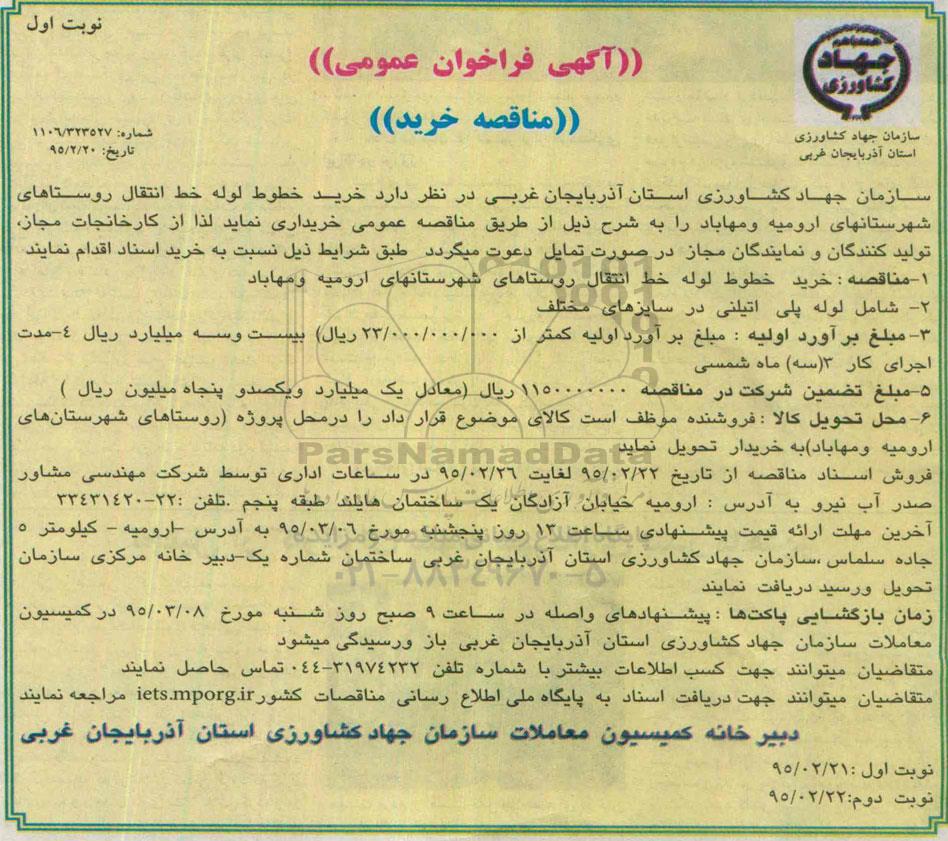 نوبت اول
((آگهی فراخوان عمومی))
((مناقصه خرید))
جهاد
کشاورزی
سازمان جهاد کشاورزی
استان آذربایجان غربی
شماره: ۱۱۰۶/۳۲۳۵۲۷
تاریخ: ۹۵/۲/۲۰
سازمان جهاد کشاورزی استان آذربایجان غربی در نظر دارد خرید خطوط لوله خط انتقال روستاهای
شهرستانهای ارومیه ومهاباد را به شرح ذیل از طریق مناقصه عمومی خریداری نماید لذا از کارخانجات مجاز،
تولید کنندگان و نمایندگان مجاز در صورت تمایل دعوت میگردد طبق شرایط ذیل نسبت به خرید اسناد اقدام نمایند
۱-مناقصه : خرید خطوط لوله خط انتقال روستاهای شهرستانهای ارومیه ومهاباد
۲- شامل لوله پلی اتیلنی در سایزهای مختلف
۳-مبلغ بر آورد اولیه : مبلغ بر آورد اولیه کمتر از ۲۳/۰۰۰/۰۰۰/۰۰۰ ریال) بیست وسه میلیارد ریال ۴-مدت
اجرای کار ۳(سه) ماه شمسی
۵-مبلغ تضمین شرکت در مناقصه ۱۱۵۰۰۰۰۰۰۰ ریال (معادل یک میلیارد ویکصدو پنجاه میلیون ریال )
۶- محل تحویل کالا : فروشنده موظف است کالای موضوع قرار داد را درمحل پروژه (روستاهای شهرستان‌های
ارومیه ومهاباد)به خریدار تحویل نماید
فروش اسناد مناقصه از تاریخ ۹۵/۰۲/۲۲ لغایت ۹۵/۰۲/۲۶ در ساعات اداری توسط شرکت مهندسی مشاور
صدر آب نیرو به آدرس : ارومیه خیابان آزادگان یک ساختمان هایلند طبقه پنجم .تلفن :۲۲-۳۳۴۳۱۴۲۰
آخرین مهلت ارائه قیمت پیشنهادی ساعت ۱۳ روز پنجشنبه مورخ ۹۵/۰۳/۰۶ به آدرس -ارومیه - کیلومتر ۵
جاده سلماس ،سازمان جهاد کشاورزی استان آذربایجان غربی ساختمان شماره یک-دبیر خانه مرکزی سازمان
تحویل ورسید دریافت نمایند
زمان بازگشایی پاکت‌ها : پیشنهادهای واصله در ساعت ۹ صبح روز شنبه مورخ ۹۵/۰۳/۰۸ در کمیسیون
معاملات سازمان جهاد کشاورزی استان آذربایجان غربی باز ورسیدگی میشود
متقاضیان میتوانند جهت کسب اطلاعات بیشتر با شماره تلفن ۳۱۹۷۴۲۳۲-۰۴۴ تماس حاصل نمایند
متقاضیان میتوانند جهت دریافت اسناد به پایگاه ملی اطلاع رسانی مناقصات کشور iets.mporg.ir مراجعه نمایند
دبیر خانه کمیسیون معاملات سازمان جهاد کشاورزی استان آذربایجان غربی
نوبت اول :۹۵/۰۲/۲۱
نوبت دوم:۹۵/۰۲/۲۲
ParsNamadData
۰۲۱-۸۸۳۴۹۶۷۰-۵